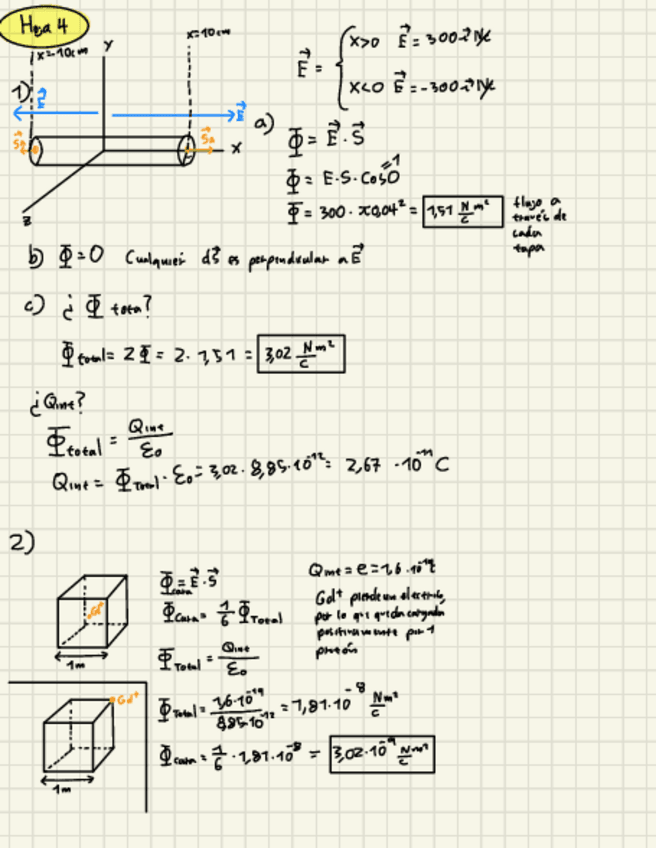 Hoja 4
x=-10cm
Y
x=10cm
E = { x>0 E = 300 i N/C
x<0 E = -300 i N/C
1)
E
E
S
S
X
Z
a) Φ = E · S
Φ = E·S·Cos0 =1
Φ = 300 · π0,04² = 1,51 N/C m²
flujo a
través de
cada
tapa
b) Φ=0 Cualquier dS es perpendicular a E
c) ¿ Φ total?
Φ total = 2 Φ = 2 · 1,51 = 3,02 N m²/C
¿Qint?
Φ total = Qint/ε0
Qint = Φ Total · ε0 = 3,02 · 8,85·10^-12 = 2,67 · 10^-11 C
2)
Gd⁺
1m
Φ cara = E · S
Φ cara = 1/6 Φ Total
Φ Total = Qint/ε0
Qint = e = 1,6 · 10^-19 C
Gd⁺ pierde un electrón,
por lo que queda cargada
positivamente por 1
protón
Gd⁺
1m
Φ Total = 1,6·10^-19 / 8,85·10^-12 = 1,81·10^-8 N m²/C
Φ cara = 1/6 · 1,81·10^-8 = 3,02·10^-9 N m²/C